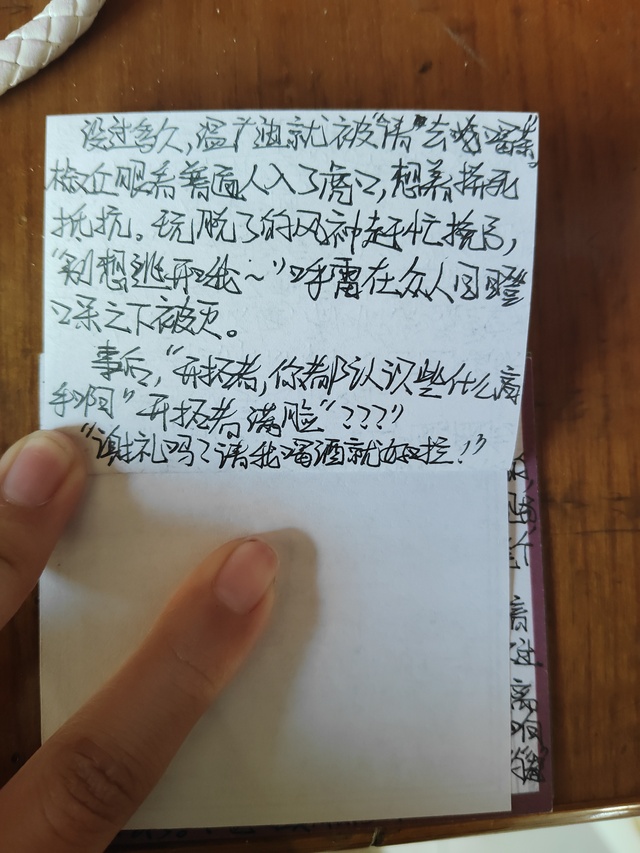 没过多久，温迪就被“请”去喝喝茶。
椒丘眼看普通人入了虎口，想着拼死
抵抗。玩脱了的风神赶忙挽弓，
“别想逃开哦～”呼雷在众人目瞪
口呆之下被灭。
事后，“开拓者，你都认识些什么高
手啊”开拓者满脸“？？？”
“谢礼吗？请我喝酒就好拦！”
音
离
啊